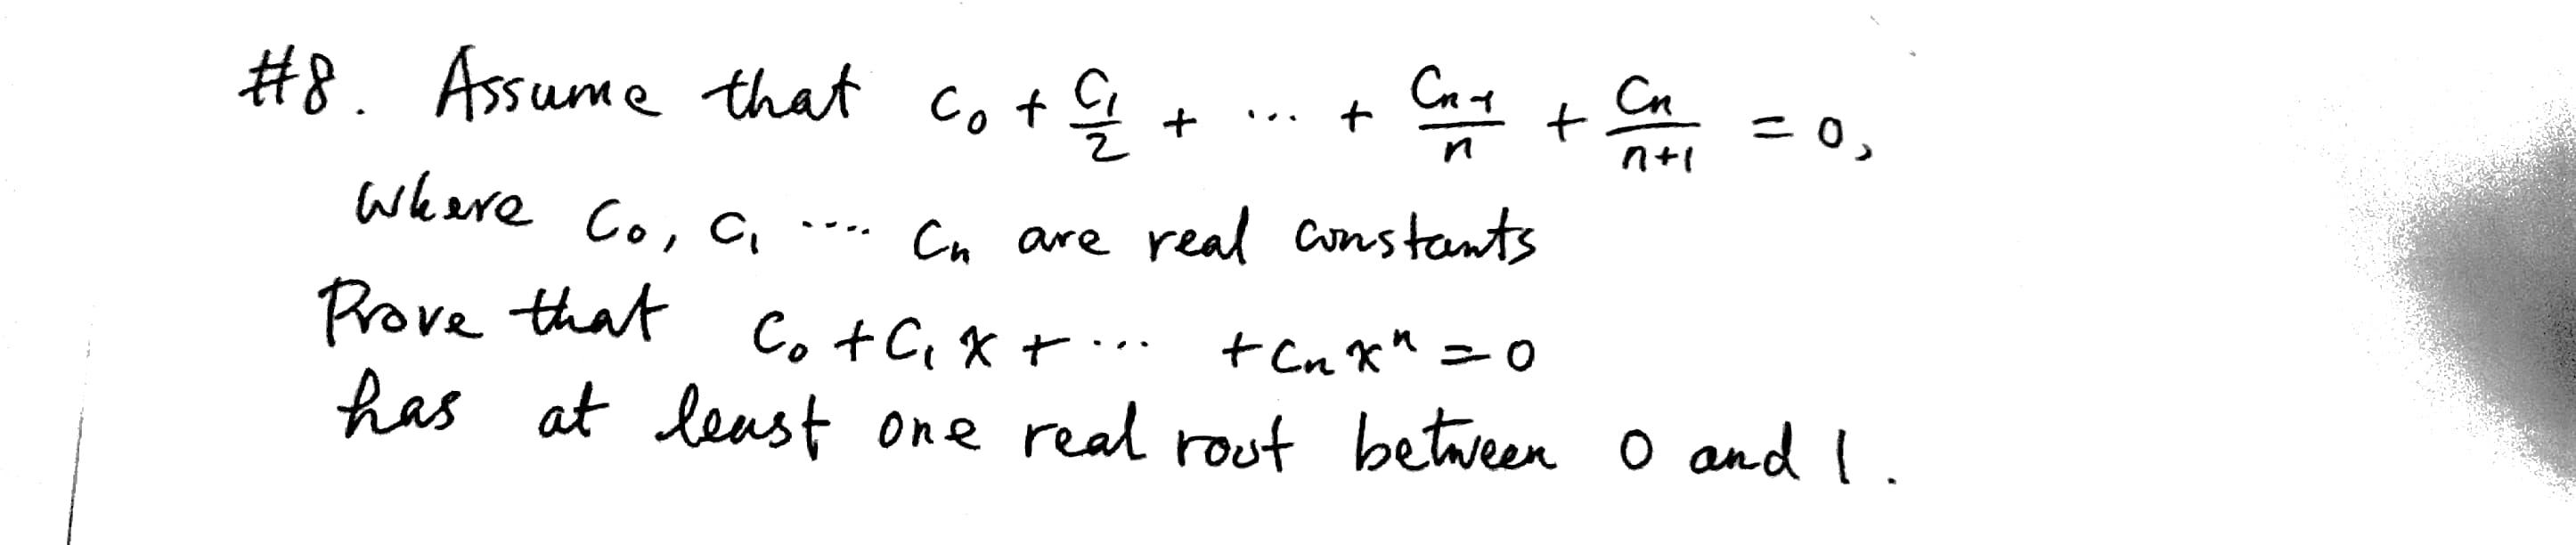 #8. Assume that c₀ + c₁/2 + ... + cₙ₋₁/n + cₙ/(n+1) = 0,
where c₀, c₁ .... cₙ are real constants
Prove that c₀ + c₁x + ... + cₙxⁿ = 0
has at least one real root between 0 and 1.